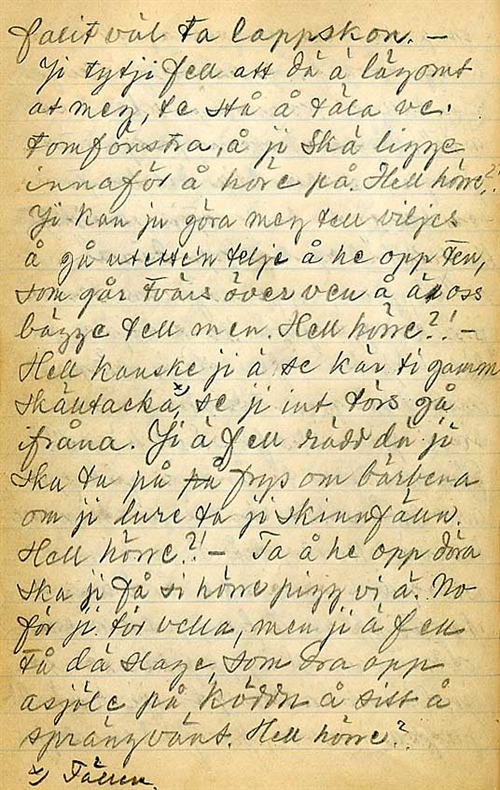 falit väl ta lappskon. —
Ji tytji fell att dä ä lagomt
at mey, te stå å tala ve.
tomfönstra, å ji ska ligge
innaför å höre på. Hell hörre?!
Ji kan ju göra mey tell viljes
å gå utette'n telje å he opp ten,
som går tvärs över ven å är oss
bägge tell men. Hell hörre?! —
Hell kanske ji ä se kär ti gamm
skäutacka x) se ji int törs gå
ifråna. Ji ä fell rädd då ji
ska ta på frys om bärbena
om ji lure ta ji skinnfälln.
Hell hörre?! — Ta å he opp döra
ska ji få si hörre pigg vi ä. No
för ji tör vella, men ji ä fell
tå dä slage, som dra opp
asjöle på köddn å sitt å
sprängvänt. Hell hörre?
x) Fällen.